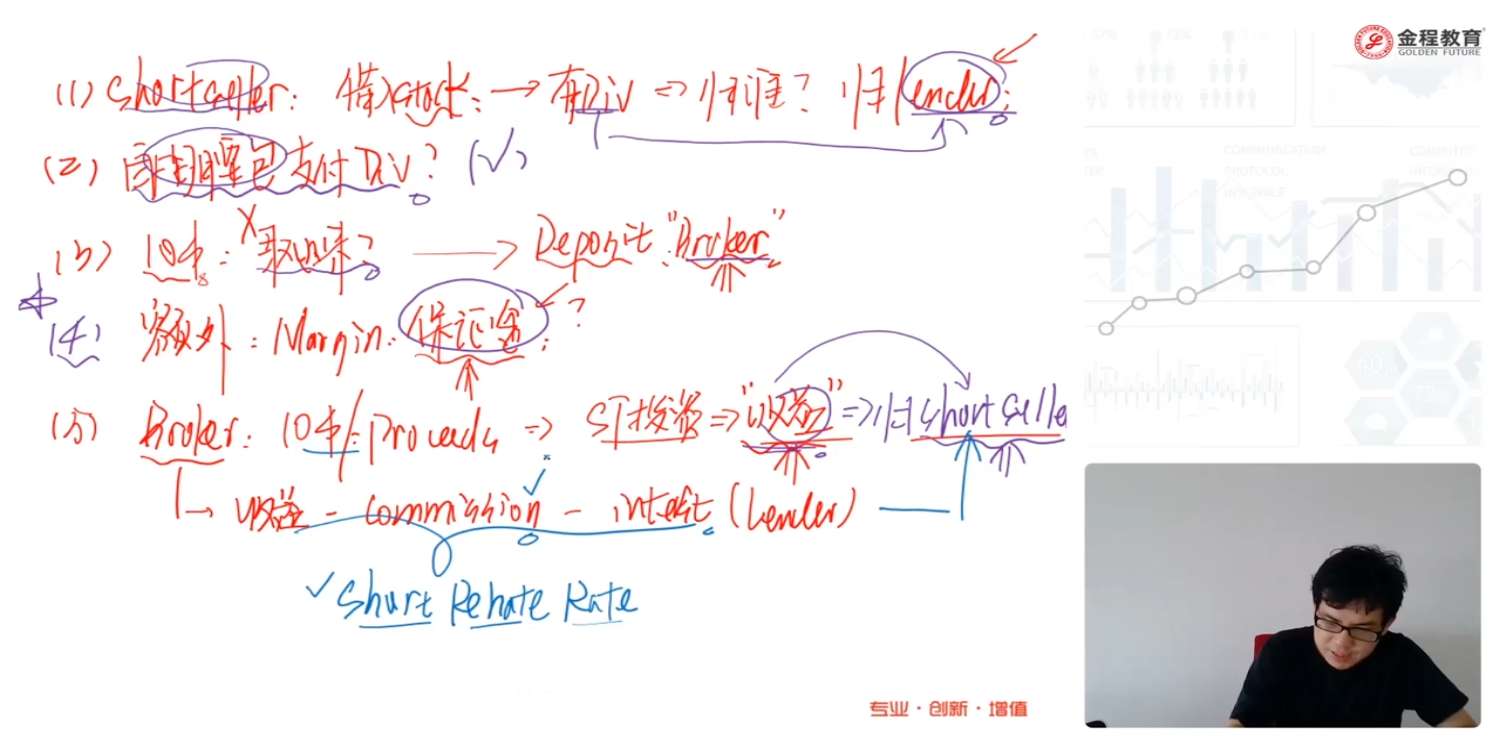 金程教育
GOLDEN FUTURE
(1) Short seller: 借入stock: → 有Div ⇒ 归谁? 归lender;
(2) 自掏腰包支付Div? (√)
(3) 10块: ×取回来? → Deposit "Broker"
(4) 额外: Margin: 保证金; ?
(5) Broker: 10块/proceeds ⇒ ST投资 ⇒ "收益" ⇒ 归short selle
→ 收益 - commission - interest (Lender)
√ Short Rebate Rate
COMMUNICATION
PROTOCOL
专业 · 创新 · 增值